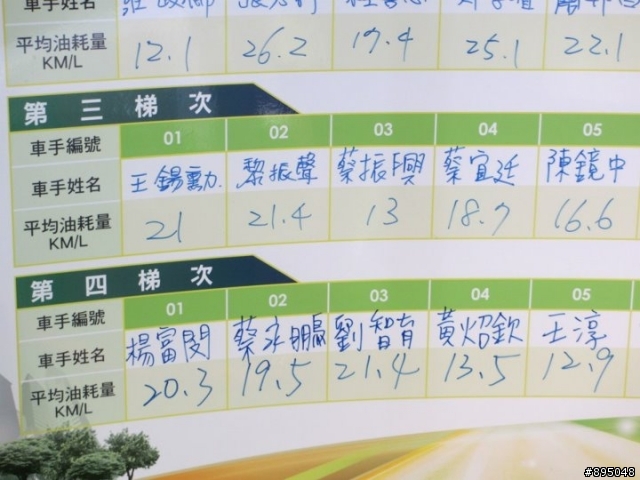 車手姓名
平均油耗量 KM/L 12.1 26.2 17.4 25.1 22.1
第三梯次
車手編號 01 02 03 04 05
車手姓名 王錫勳 黎振聲 蔡振興 蔡宜廷 陳鏡中
平均油耗量 KM/L 21 21.4 13 18.7 16.6
第四梯次
車手編號 01 02 03 04 05
車手姓名 楊富閔 蔡永鵬 劉智育 黃炤欽 王淳
平均油耗量 KM/L 20.3 19.5 21.4 13.5 12.9
#895048